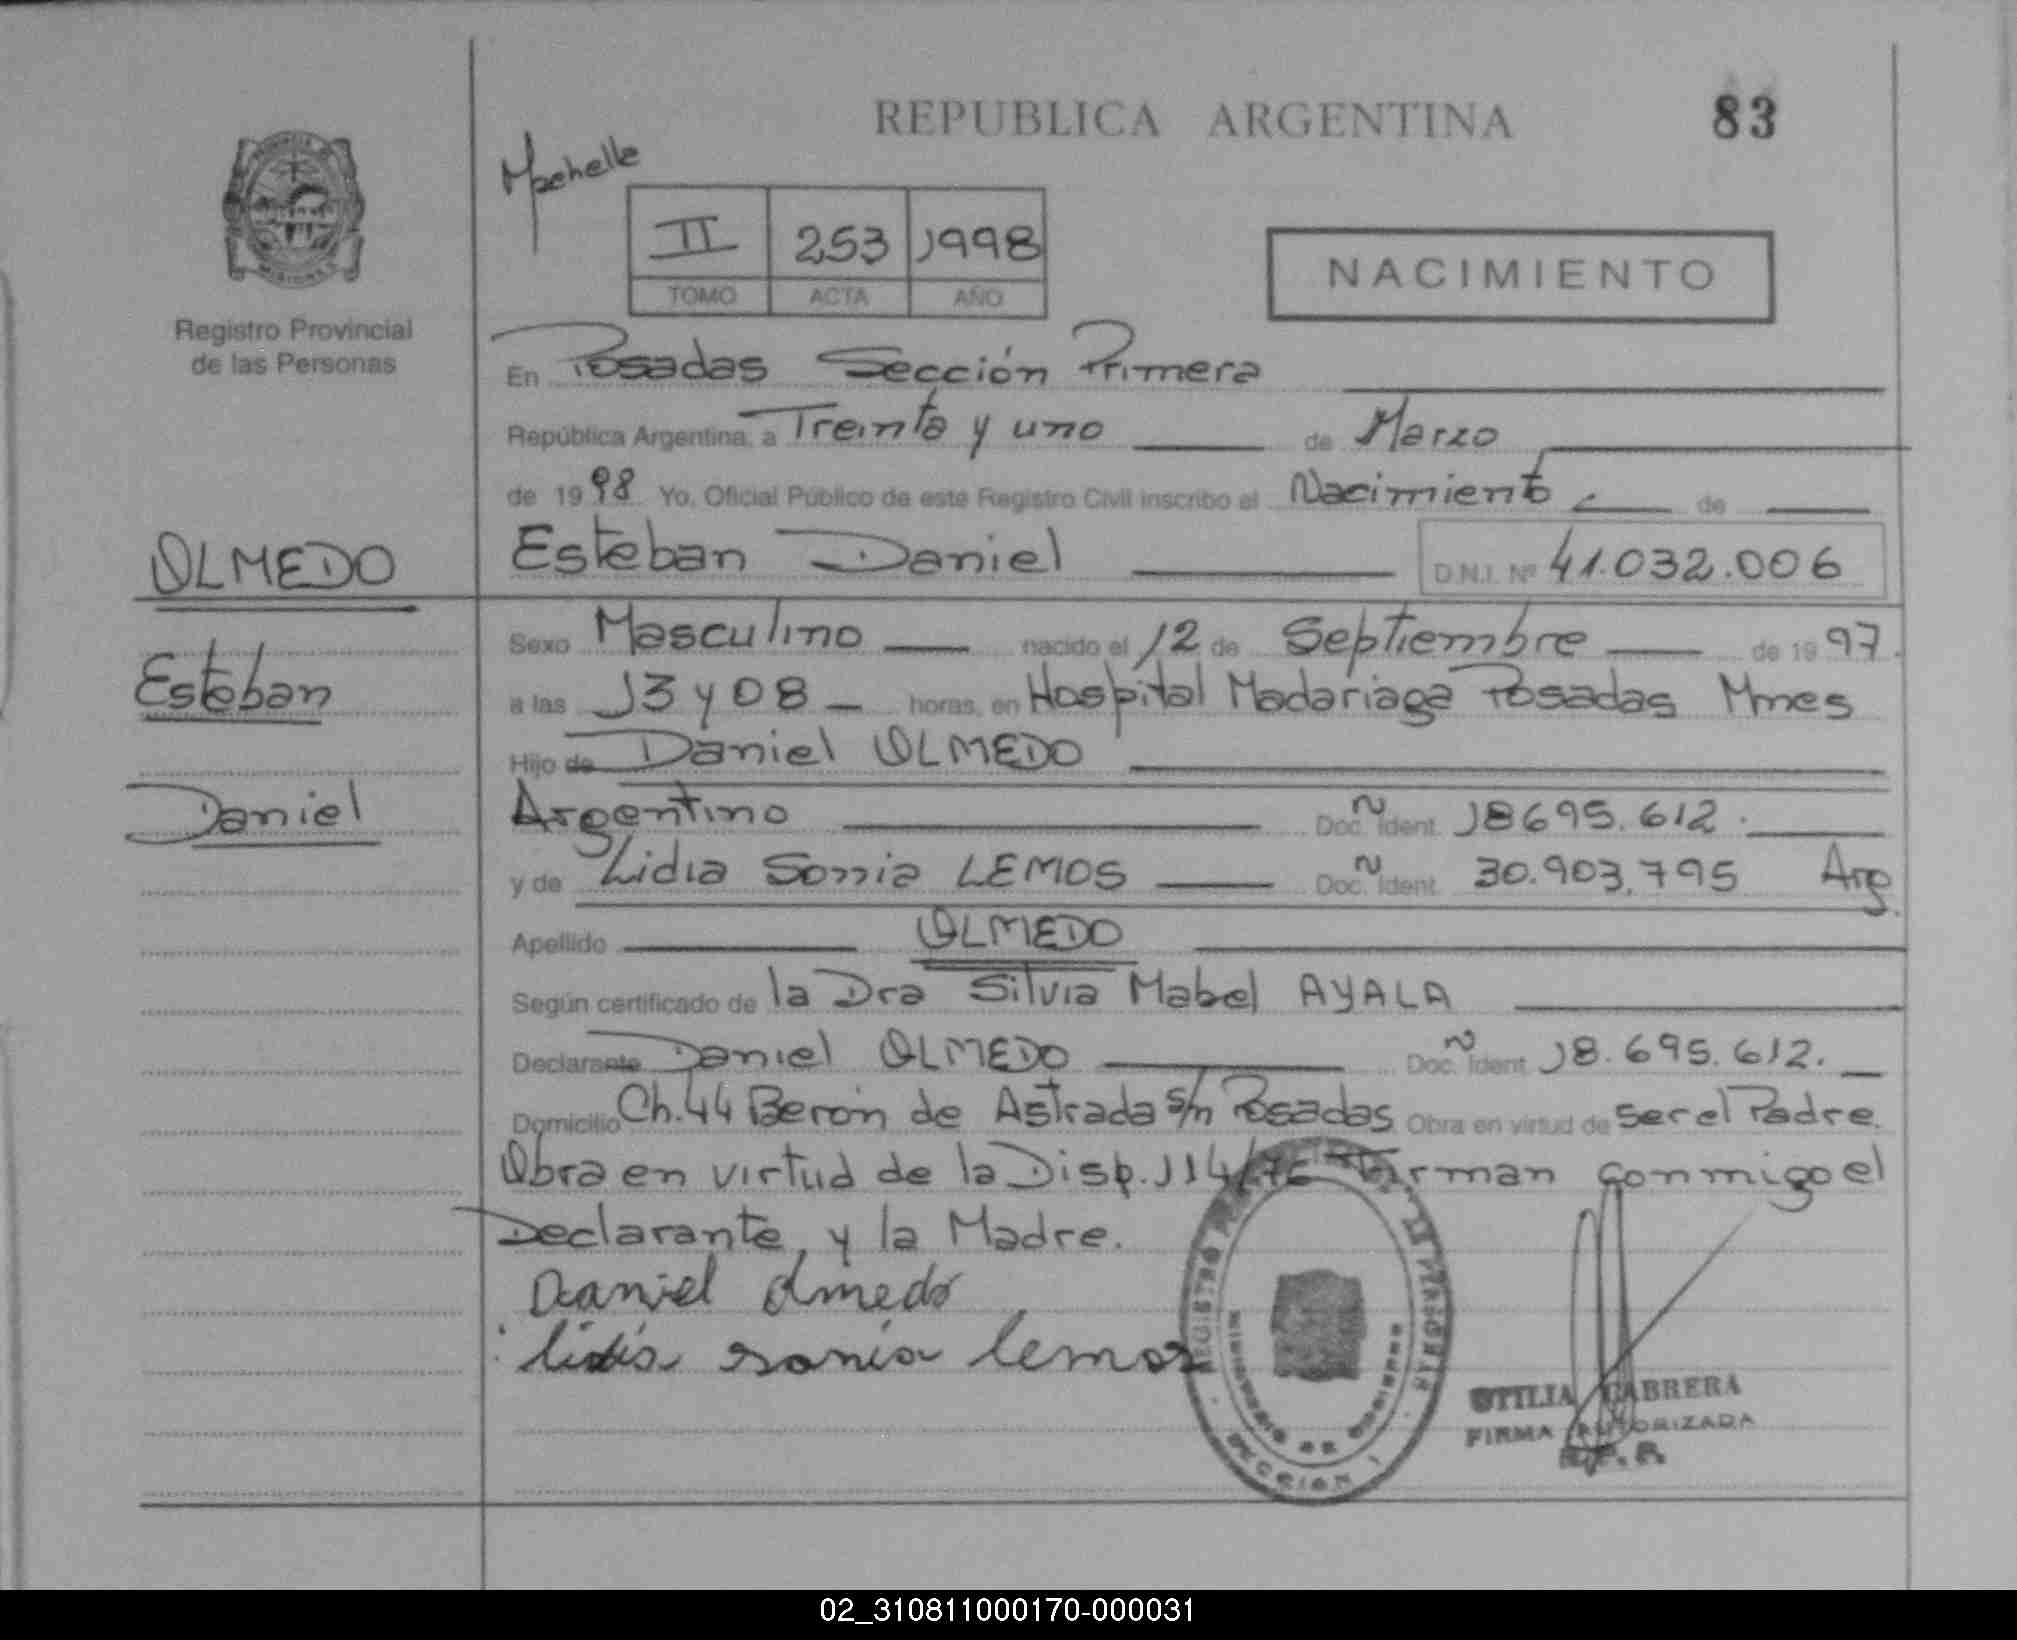 REPUBLICA ARGENTINA
83
II 253 1998
TOMO ACTA AÑO
NACIMIENTO
Registro Provincial
de las Personas
En Posadas Sección Primera
República Argentina, a Treinta y uno de Marzo
de 1998 Yo, Oficial Público de este Registro Civil inscribo el Nacimiento de
OLMEDO
Esteban Daniel D.N.I. Nº 41.032.006
Sexo Masculino nacido el 12 de Septiembre de 1997.
Esteban
a las 13 y 08 horas, en Hospital Madariaga Posadas Mnes
Hijo de Daniel OLMEDO
Daniel
Argentino Doc. Ident. 18695.612.
y de Lidia Sonia LEMOS Doc. Ident. 30.903.795 Arg.
Apellido OLMEDO
Según certificado de la Dra Silvia Mabel AYALA
Declarante Daniel OLMEDO Doc. Ident. 18.695.612.
Domicilio Ch. 44 Beron de Astrada s/n Posadas Obra en virtud de ser el Padre.
Obra en virtud de la Disp. 114/76 Firman conmigo el
Declarante, y la Madre.
Daniel Olmedo
lidia sonia lemos
REGISTRO DE LAS PERSONAS
MINISTERIO DE GOBIERNO
SECCION 1
OTILIA CABRERA
FIRMA AUTORIZADA
02_310811000170-000031